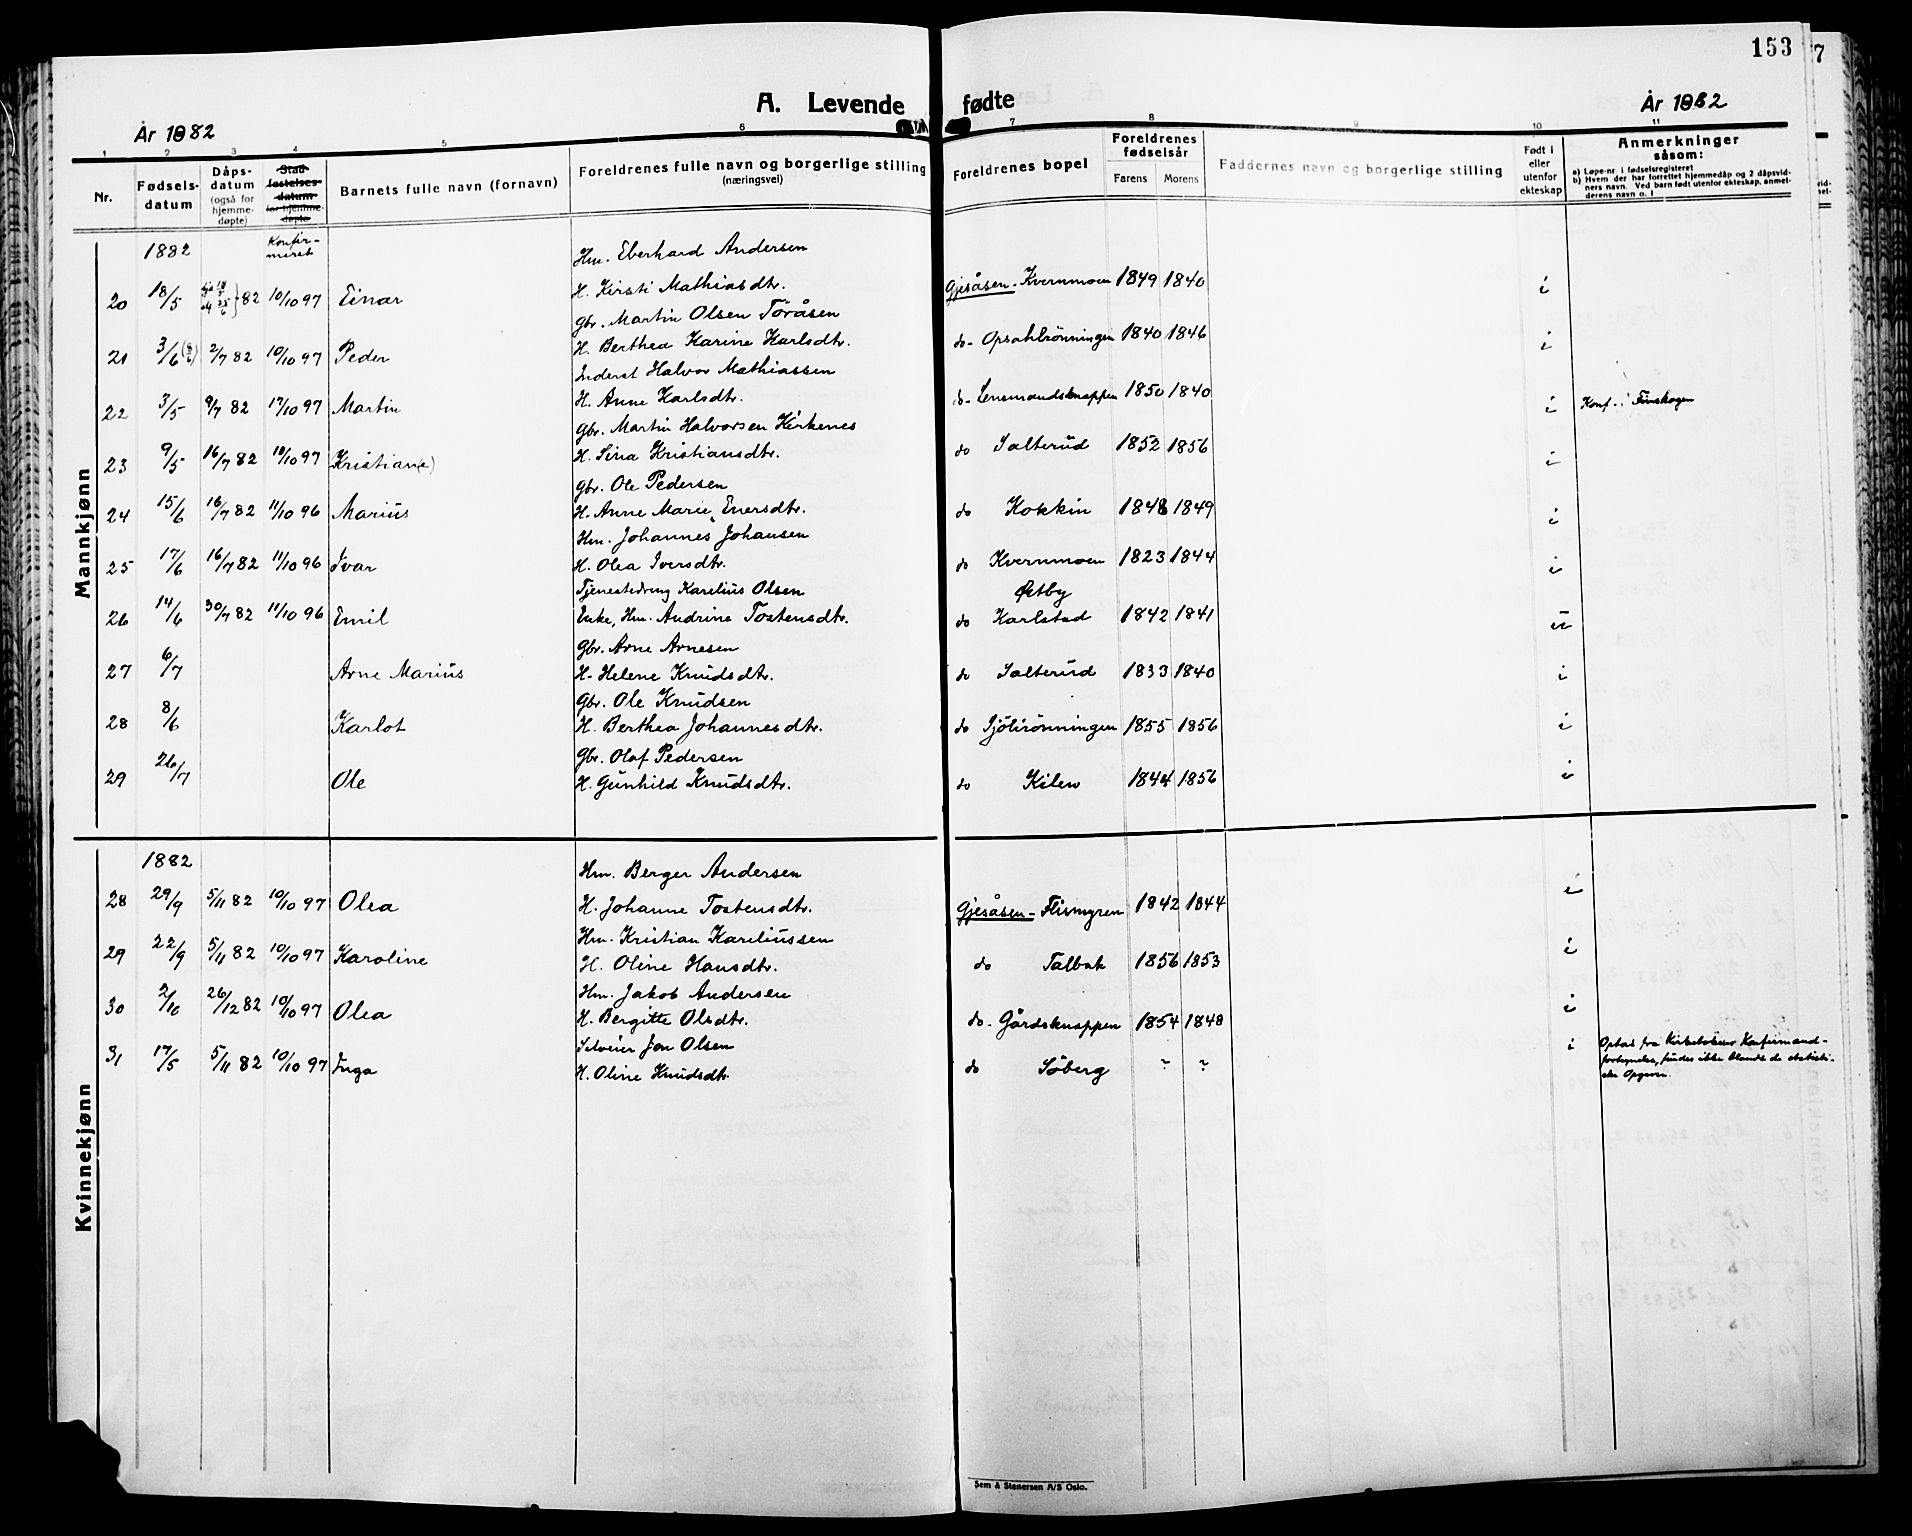 153
7
A. Levende fødte
År 1882
År 1882
1 2 3 4 5 6 7 8 9 10 11
Nr.
Fødsels-
datum
Dåps-
datum
(også for
hjemme-
døpte)
Stad-
festelses-
datum
for hjemme-
døpte
Barnets fulle navn (fornavn)
Foreldrenes fulle navn og borgerlige stilling
(næringsvei)
Foreldrenes bopel
Foreldrenes
fødselsår
Farens Morens
Faddernes navn og borgerlige stilling
Født i
eller
utenfor
ekteskap
Anmerkninger
såsom:
a) Løpe-nr. i fødselsregisteret
b) Hvem der har forrettet hjemmedåp og 2 dåpsvid-
ners navn. Ved barn født utenfor ekteskap, anmel-
derens navn o. l
Mannkjønn
1882
Konfir-
meret
Hm. Eberhard Andersen
20 18/5 82 10/10 97 Einar H. Kirsti Mathiasdtr. Gjesåsen - Kvernmoen 1849 1840 i
Gbr. Martin Olsen Töråsen
21 3/6 2/7 82 10/10 97 Peder H. Berthea Karine Karlsdtr. do - Opsahlrönningen 1840 1846 i
Inderst Halvor Mathiassen
22 3/5 9/7 82 17/10 97 Martin H. Anne Karlsdtr. do - Lensmandsknappen 1850 1840 i Konf. i Finskogen
Gbr. Martin Halvorsen Kirkenes
23 9/5 16/7 82 10/10 97 Kristian(e) H. Sina Kristiansdtr. do Salterud 1852 1856 i
Gbr. Ole Pedersen
24 15/6 16/7 82 11/10 96 Marius H. Anne Marie Enersdtr. do Kokkin 1848 1849 i
Hm. Johannes Johansen
25 17/6 16/7 82 11/10 96 Ivar H. Olea Iversdtr. do Kvernmoen 1823 1844 i
Tjenestedreng Karelius Olsen Østby
26 14/6 30/7 82 11/10 96 Emil Enke, Hm. Andrine Tostensdtr. do Karlstad 1842 1841 u
Gbr. Arne Arnesen
27 6/7 Arne Marius H. Helene Knudsdtr. do Salterud 1833 1840 i
Gbr. Ole Knudsen
28 8/6 Karlot H. Berthea Johannesdtr. do Sjölirönningen 1855 1856 i
Gbr. Olof Pedersen
29 26/7 Ole H. Gunhild Knudsdtr. do Kilen 1844 1856 i
Kvinnekjønn
1882
Hm. Berger Andersen
28 29/9 5/11 82 10/10 97 Olea H. Johanne Tostensdtr. Gjesåsen - Flismyren 1842 1844 i
Hm. Kristian Kareliussen
29 22/9 5/11 82 10/10 97 Karoline H. Oline Hansdtr. do Talbak 1856 1853 i
Hm. Jakob Andersen
30 2/10 26/12 82 10/10 97 Olea H. Bergitte Olsdtr. do - Gårdsknappen 1854 1848 i
Selveier Jon Olsen
31 17/5 5/11 82 10/10 97 Inga H. Oline Knudsdtr. do Söberg ? ? i
Optat fra Kirkebokens Konfirmand-
fortegnelse, findes ikke blandt de statisti-
ske Opgaver.
Sem & Stenersen A/S Oslo.